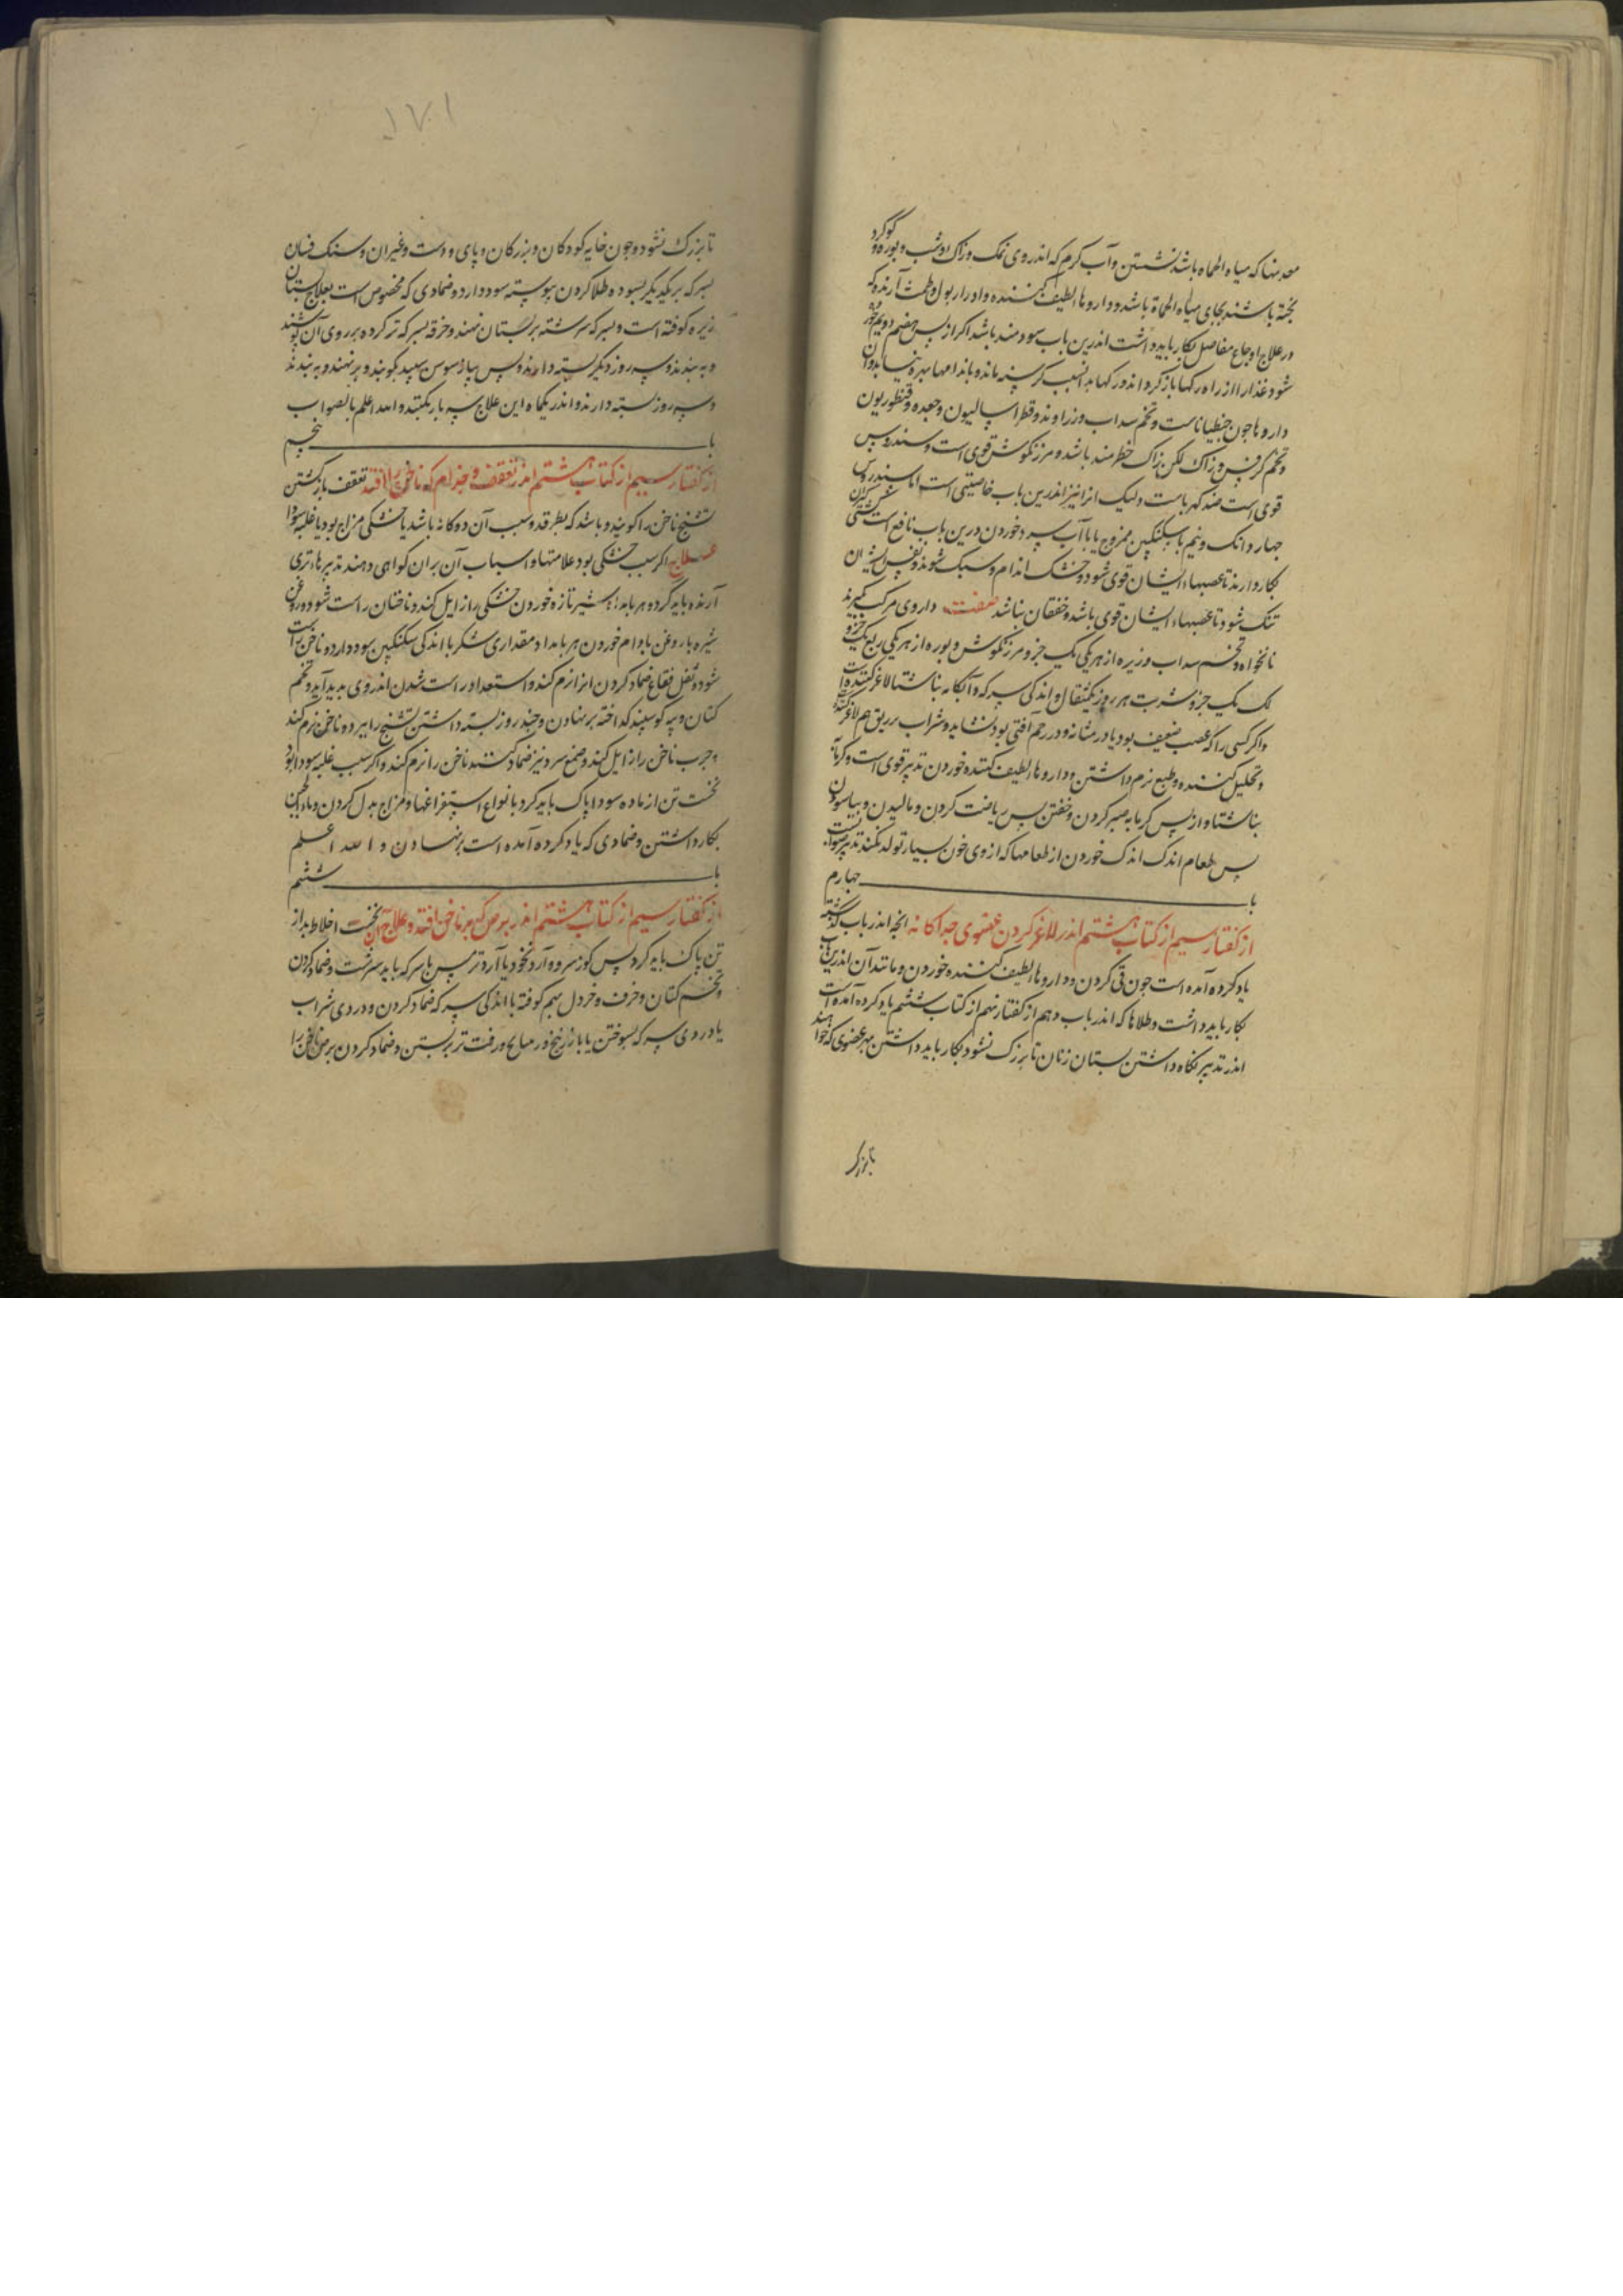 معدنها که میاه الحماه باشد نشستن و آب کرم که اندر وی نمک و زاک و شب و بوره و کوکرد
بخته باشند بجای میاه الحماة باشد و داروها لطیف کننده و ادرار بول و طمث آرنده که
در علاج اوجاع مفاصل بکار باید داشت اندرین باب سودمند باشد اکر از پس هضم دویم خورده
شود غذا را از راه رکها باز کرداند رکها بدانسبب کرسنه ماند و باندامها بهره نیابد و آن
داروها جون جنطیاناست و تخم سداب و زراوند و قطراسالیون و جعده و قنطوریون
و تخم کرفس و زاک لکن زاک خطرمند باشد و مرزنکوش قوی است و سندروس
قوی است ضد کهرباست ولیک انرا نیز اندرین باب خاصیتی است اما سندروس
جهار دانک و نیم با سکنکبین ممزوج یا با آب سرد خوردن درین باب نافع است کشتی کیران
بکار دارند تا عصبهاء ایشان قوی شود و خشک اندام و سبک شوند و نفس ایشان
تنک شود تا عصبهاء ایشان قوی باشد و خفقان نباشد صفت داروی مرکب کیرند
نانخواه و تخم سداب و زیره از هر یکی یک جزو مرزنکوش و بوره از هر یکی ربع یک جزو
لک یک جزو شربت هر روز یکمثقال و اندکی سرکه و آبکامه بناشتا لاغر کننده است
و اکر کسی را که عصب ضعیف بود یا در مثانه و در رحم آفتی بود نشاید و شراب بر ریق هم لاغر کند
و تحلیل کننده و طبع نرم داشتن و داروها لطیف کننده خوردن تدبیر قوی است و کرمابه
بناشتا و از پس کرمابه صبر کردن و خفتن پس ریاضت کردن و مالیدن و بیاسودن
پس طعام اندک اندک خوردن از طعامها که از وی خون بسیار تولد نکند تدبیر صوابست
باب جهارم
از کفتار سیم از کتاب هشتم اندر لاغر کردن عضوی جداکانه انجه اندر باب کذشته
یاد کرده آمده است جون قی کردن و داروها لطیف کننده خوردن و مانند آن اندرین باب
بکار باید داشت و طلاها که اندر باب دهم از کفتار نهم از کتاب ششم یاد کرده آمده است
اندر تدبیر نکاه داشتن بستان زنان تا بزرک نشود بکار باید داشتن بهر عضوی که خواهند
تا بزرک
۱۷۱
تا بزرک نشود و جون خایه کودکان و بزرکان و پای و دست و غیر ان و سنک فسان
بسرکه بر یکدیکر بسوده طلا کردن بیوسته سود دارد و ضمادی که مخصوص است بعلاج بستان
زیره کوفته است و بسرکه سرشته بر بستان نهند و خرقه بسرکه تر کرده بر روی آن پوشند
و به بندند و سه روز دیکر بسته دارند و پس پیاز سوسن سپید بکوبند و بر نهند و به بندند
و سه روز بسته دارند و اندر یکماه این علاج سه بار بکنند و الله اعلم بالصواب
باب پنجم
از کفتار سیم از کتاب هشتم اندر تعقف و جذام که ناخن را افتد تعقف باز کشتن
تشنج ناخن را کویند و باشد که بطرقد و سبب آن دو کانه باشد یا خشکی مزاج بود یا غلبه سودا
علاج اکر سبب خشکی بود علامتها و اسباب آن بران کواهی دهند تدبیرها تری
آرنده باید کرد و هر بامداد شیر تازه خوردن خشکی را زایل کند و ناخنان راست شود و روغن
شیره با روغن بادام خوردن هر بامداد مقداری شکر با اندکی سکنکبین سود دارد و ناخن راست
شود و ثفل فقاع ضماد کردن انرا نرم کند و استعداد راست شدن اندر وی بدید آید و تخم
کتان و پیه کوسپند کداخته بر نهادن و جند روز بسته داشتن تشنج را ببرد و ناخن نرم کند
و جرب ناخن را زایل کند و صمغ سرو نیز ضماد کنند ناخن را نرم کند و اکر سبب غلبه سودا بود
نخست تن از ماده سودا پاک باید کرد بانواع استفراغها و مزاج بدل کردن و ماءالجبن
بکار داشتن و ضمادی که یاد کرده آمده است بر نهادن و الله اعلم
باب ششم
از کفتار سیم از کتاب هشتم اندر برص که بر ناخن افتد و علاج آن نخست اخلاط بد از
تن پاک باید کرد پس کوز سرو و آرد نخود یا آرد ترمس با سرکه باید سرشت و ضماد کردن
و تخم کتان و خرف و خردل بهم کوفته با اندکی سرکه ضماد کردن و دردی شراب
یا دردی سرکه بسوختن یا با زرنیخ و زفت تر بربستن و ضماد کردن برص ناخن را